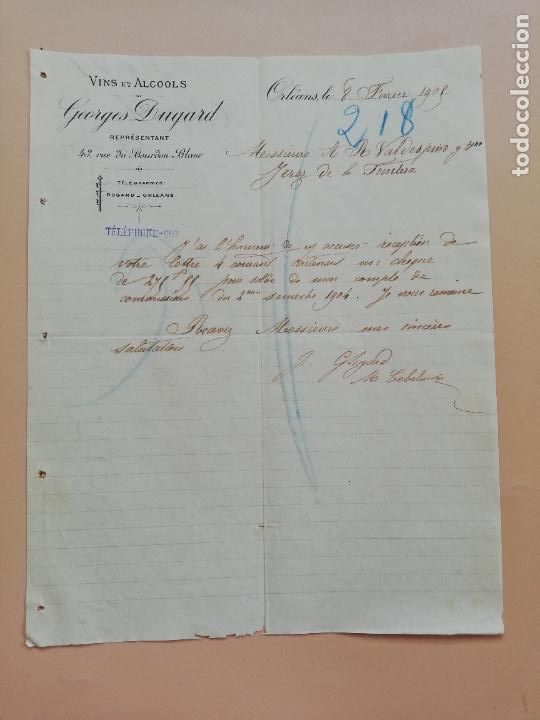 VINS ET ALCOOLS
Georges Dugard
REPRÉSENTANT
43, rue du Bourdon-Blanc
TÉLÉGRAMMES:
DUGARD - ORLÉANS
TÉLÉPHONE
Orléans, le 8 Fevrier 1905
218
Messieurs A R Valdespino y
Jerez de la Frontera
J'ai l'honneur de vs accuser reception de
votre lettre 4 courant contenant un cheque
de pour solde de mon compte de
commissions du 2eme semestre 1904. Je vous remercie
Recevez Messieurs mes sincères
salutations
GDugard
todocoleccion